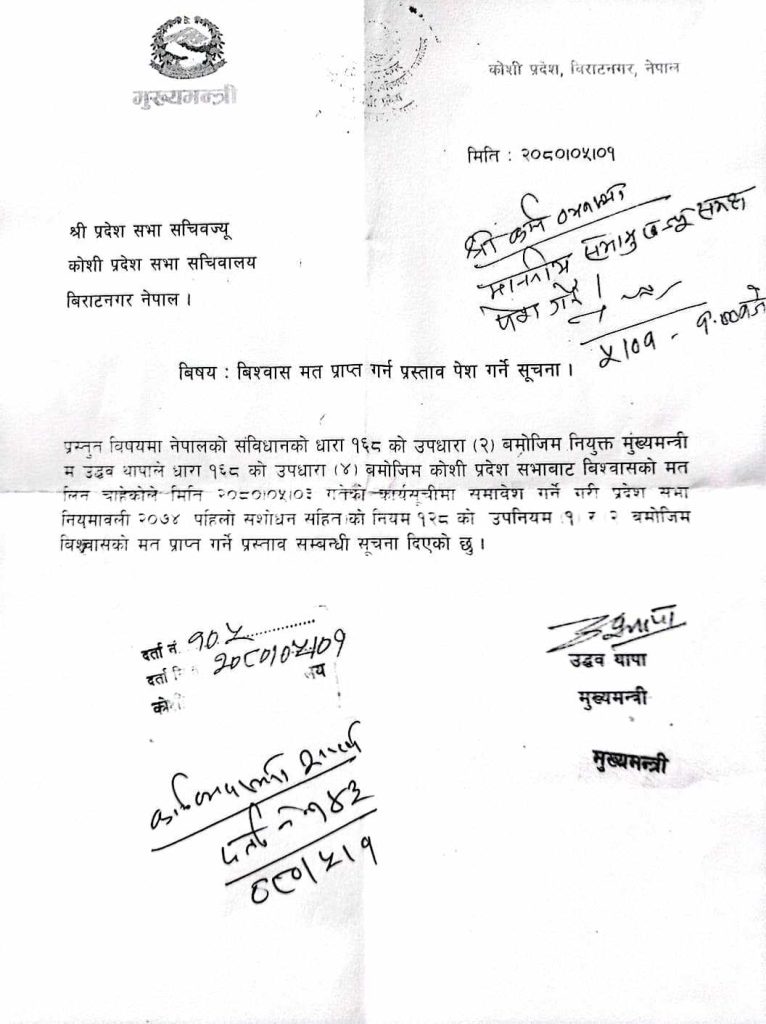 मुख्यमन्त्री
कोशी प्रदेश, विराटनगर, नेपाल
मिति : २०८०।०५।०१
श्री प्रदेश सभा सचिवज्यू
कोशी प्रदेश सभा सचिवालय
बिराटनगर नेपाल ।
श्री कार्य व्यवस्था
माननीय सभामुखज्यू समक्ष
पेश गर्ने ।
५।०१
बिषय : बिश्वास मत प्राप्त गर्न प्रस्ताव पेश गर्ने सूचना ।
प्रस्तुत विषयमा नेपालको संविधानको धारा १६८ को उपधारा (२) बमोजिम नियुक्त मुख्यमन्त्री
म उद्धव थापाले धारा १६८ को उपधारा (४) बमोजिम कोशी प्रदेश सभाबाट बिश्वासको मत
लिन चाहेकोले मिति २०८०।०५।०३ गतेको कार्यसूचीमा समावेश गर्ने गरी प्रदेश सभा
नियमावली २०७४ पहिलो संशोधन सहित।को नियम १२८ को उपनियम १ र २ बमोजिम
बिश्वासको मत प्राप्त गर्ने प्रस्ताव सम्बन्धी सूचना दिएको छु ।
दर्ता नं. १०५
दर्ता २०८०।०५।०१
उद्धव थापा
मुख्यमन्त्री
मुख्यमन्त्री
कार्यव्यवस्था शाखा
दर्ता नं १४३
०८०।५।१